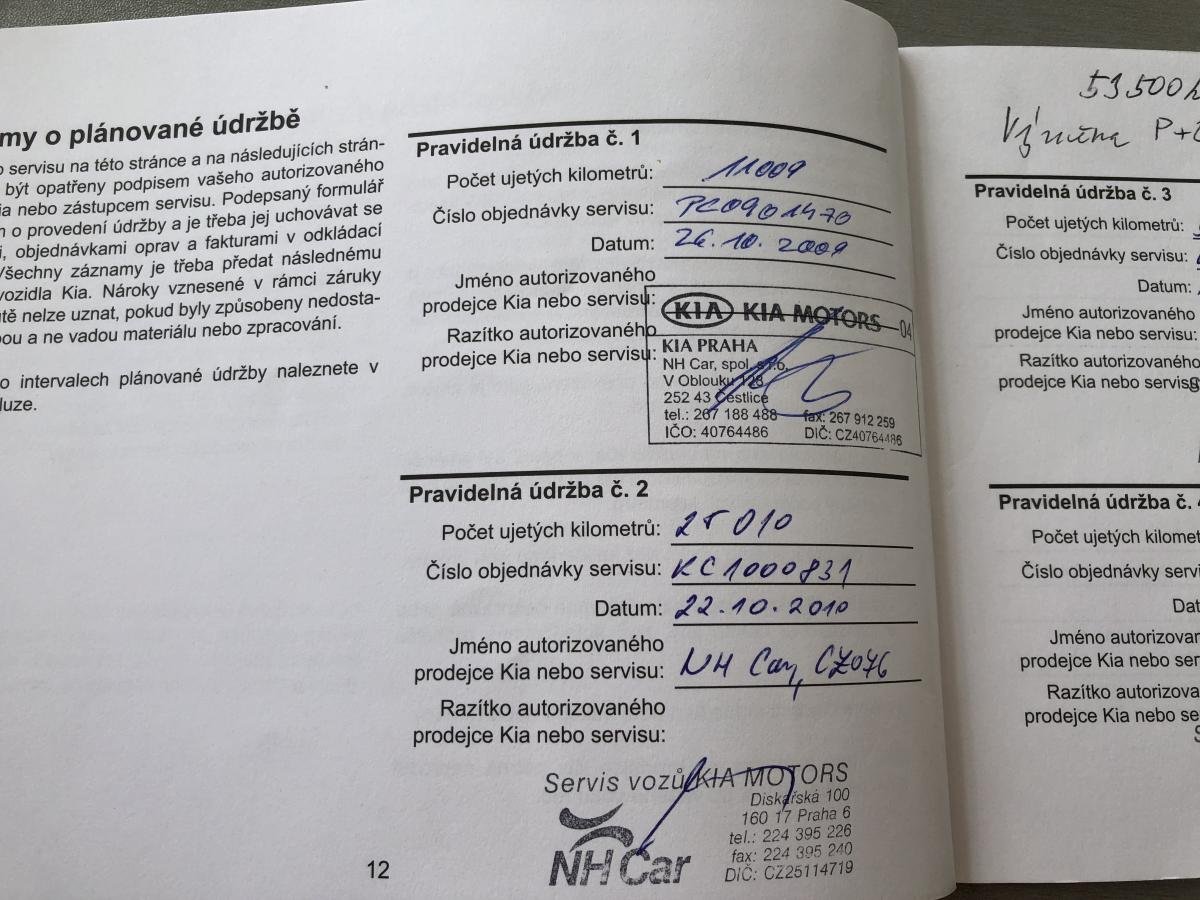 my o plánované údržbě
o servisu na této stránce a na následujících strán-
být opatřeny podpisem vašeho autorizovaného
ia nebo zástupcem servisu. Podepsaný formulář
m o provedení údržby a je třeba jej uchovávat se
i, objednávkami oprav a fakturami v odkládací
Všechny záznamy je třeba předat následnému
vozidla Kia. Nároky vznesené v rámci záruky
utě nelze uznat, pokud byly způsobeny nedosta-
bou a ne vadou materiálu nebo zpracování.
o intervalech plánované údržby naleznete v
luze.
12
Pravidelná údržba č. 1
Počet ujetých kilometrů: 11009
Číslo objednávky servisu: PC0901470
Datum: 26.10.2009
Jméno autorizovaného
prodejce Kia nebo servisu:
Razítko autorizovaného
prodejce Kia nebo servisu:
KIA KIA MOTORS 04
KIA PRAHA
NH Car, spol. s r.o.
V Oblouku 128
252 43 Čestlice
tel.: 267 188 488 fax: 267 912 259
IČO: 40764486 DIČ: CZ40764486
Pravidelná údržba č. 2
Počet ujetých kilometrů: 25 010
Číslo objednávky servisu: KC1000831
Datum: 22.10.2010
Jméno autorizovaného
prodejce Kia nebo servisu: NH Car, CZ076
Razítko autorizovaného
prodejce Kia nebo servisu:
Servis vozů KIA MOTORS
Diskařská 100
160 17 Praha 6
tel.: 224 395 226
fax: 224 395 240
DIČ: CZ25114719
NH Car
53500
Výměna P+
Pravidelná údržba č. 3
Počet ujetých kilometrů:
Číslo objednávky servisu:
Datum:
Jméno autorizovaného
prodejce Kia nebo servisu:
Razítko autorizovaného
prodejce Kia nebo servis
Pravidelná údržba č.
Počet ujetých kilomet
Číslo objednávky servi
Dat
Jméno autorizovan
prodejce Kia nebo ser
Razítko autorizova
prodejce Kia nebo se